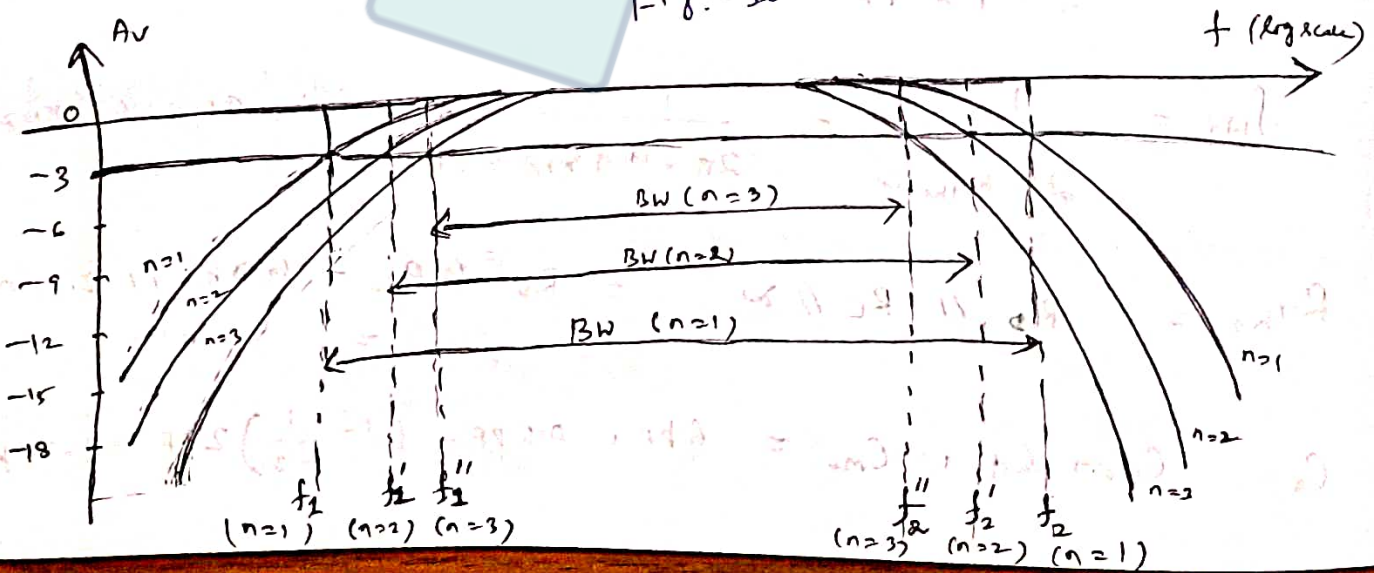 Av
f (log scale)
0
-3
-6
-9
-12
-15
-18
n=1
n=2
n=3
BW (n=3)
BW (n=2)
BW (n=1)
n=1
n=2
n=3
f1 f1' f1'' f2'' f2' f2
(n=1) (n=2) (n=3) (n=3) (n=2) (n=1)